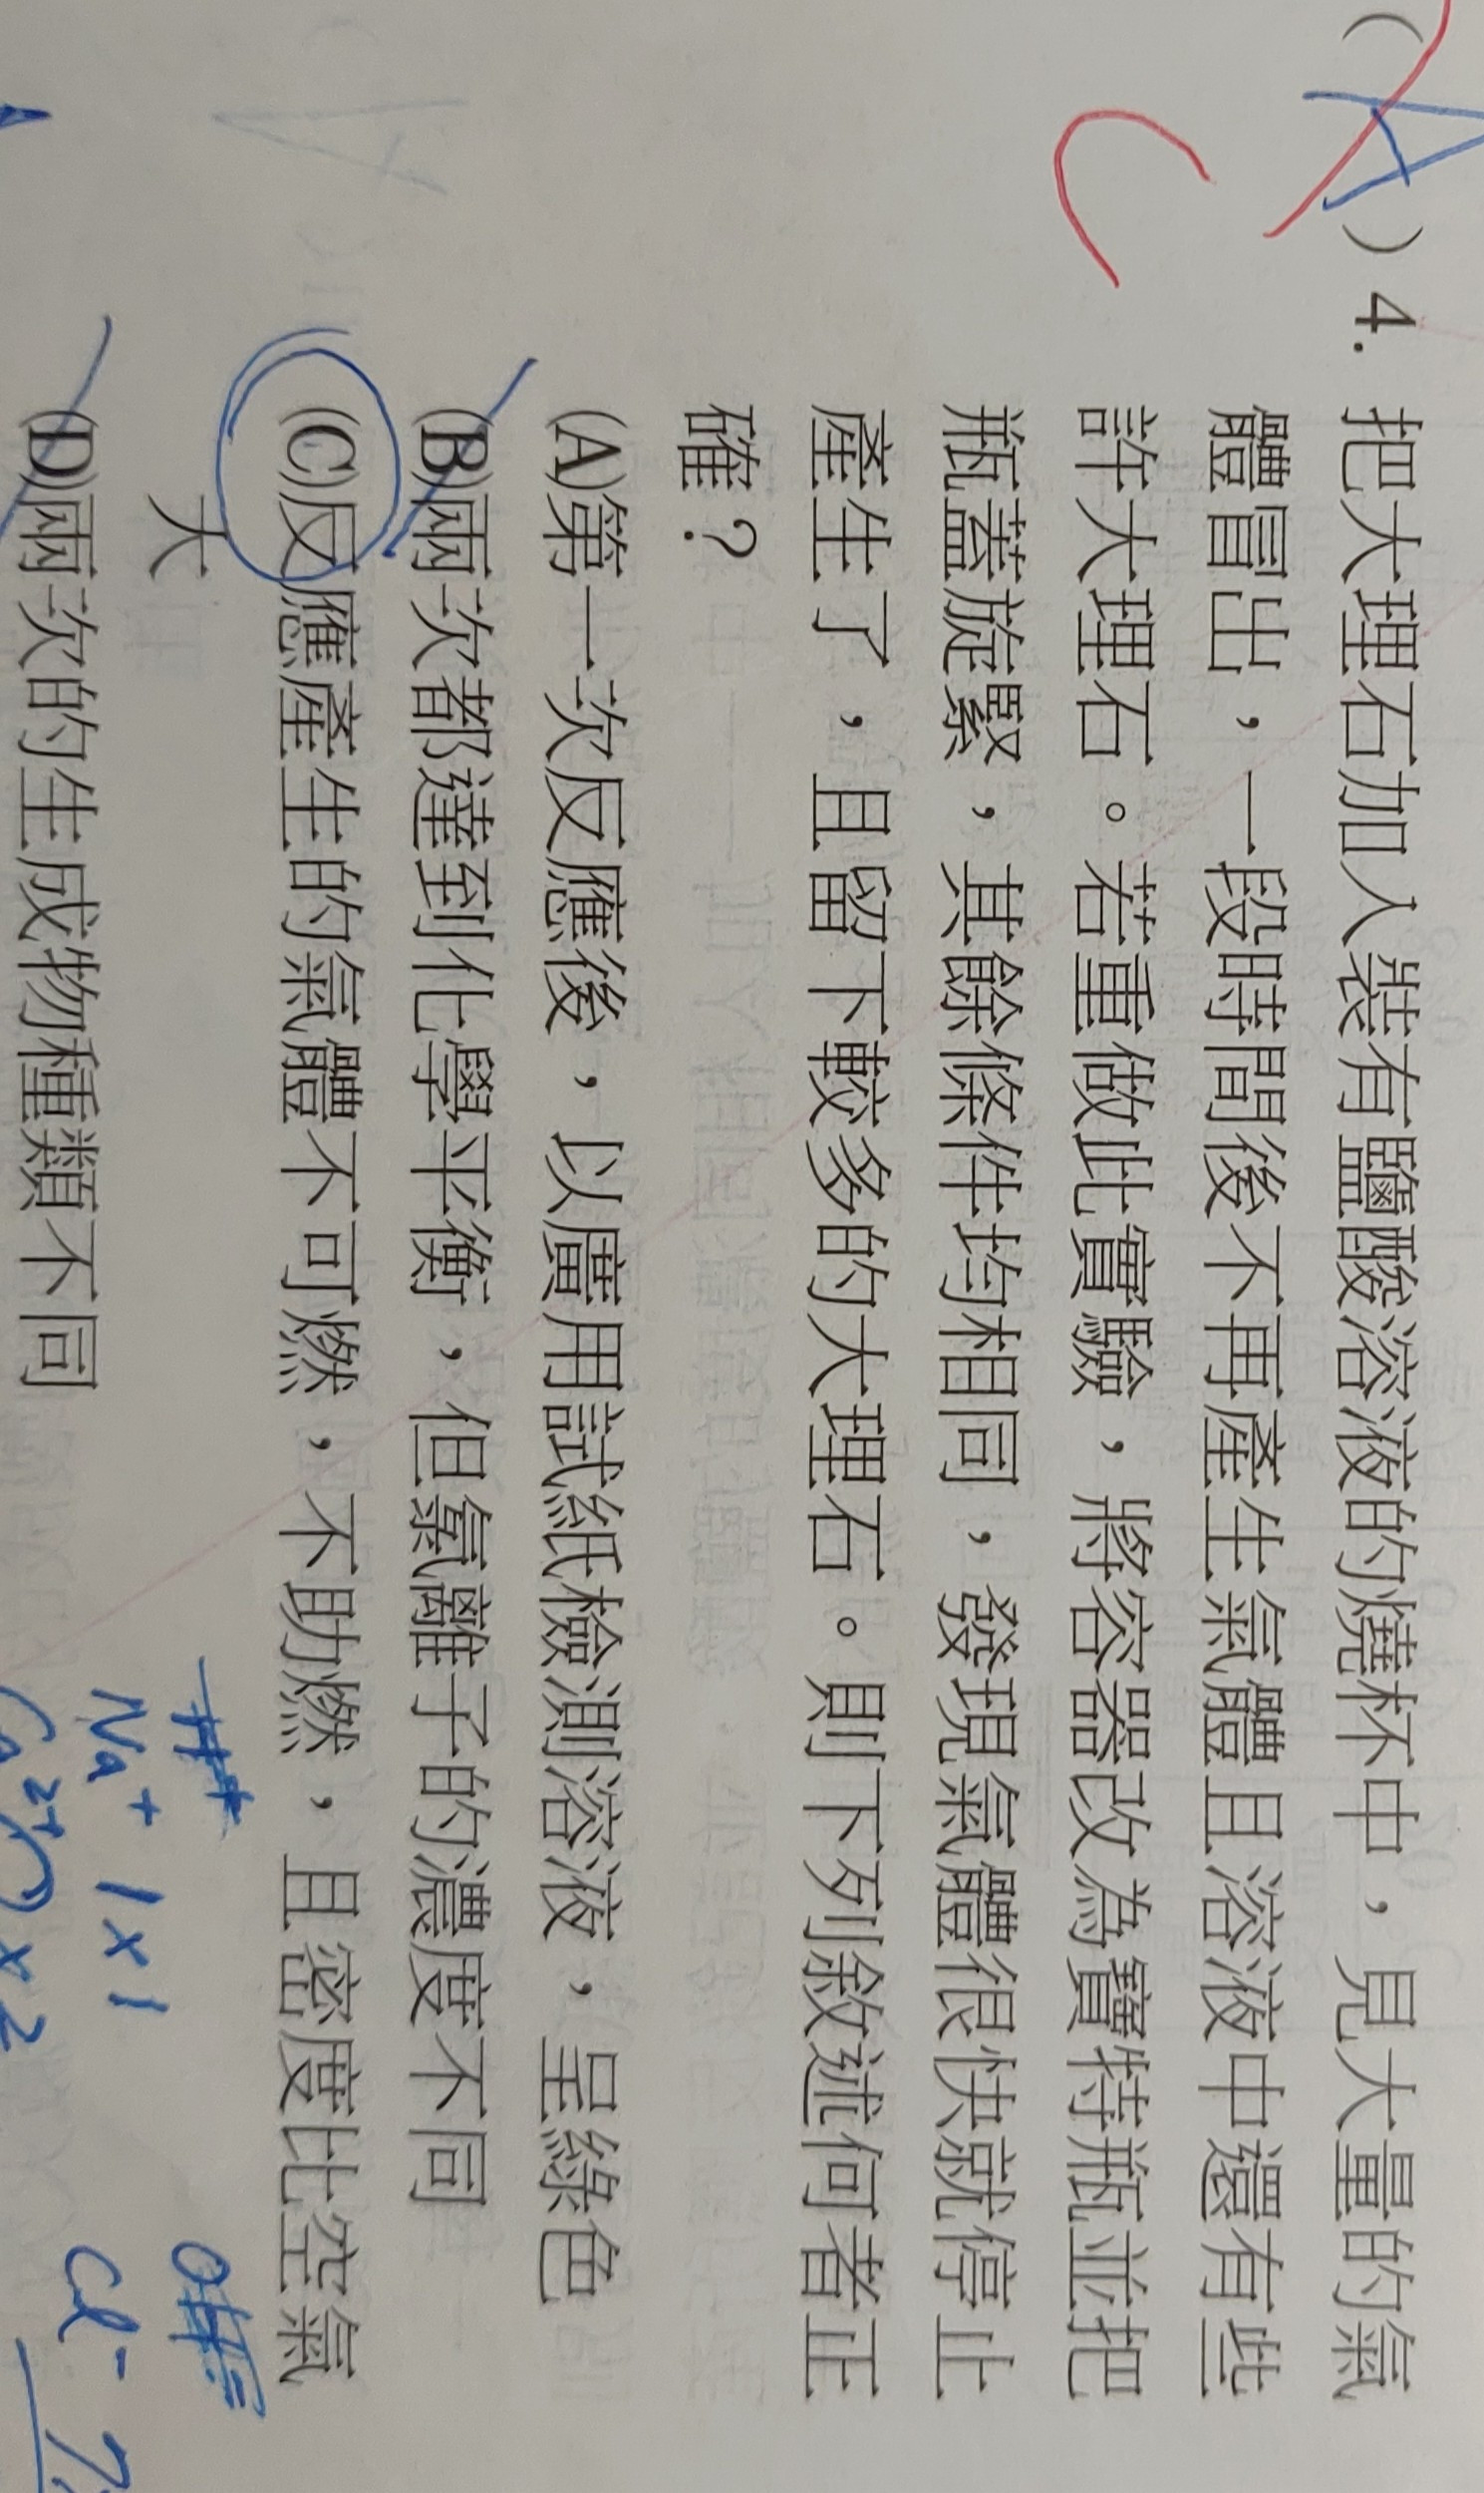 (A)4. 把大理石加入裝有鹽酸溶液的燒杯中，見大量的氣
體冒出，一段時間後不再產生氣體且溶液中還有些
C
許大理石。若重做此實驗，將容器改為寶特瓶並把
瓶蓋旋緊，其餘條件均相同，發現氣體很快就停止
產生了，且留下較多的大理石。則下列敘述何者正
確？
(A)第一次反應後，以廣用試紙檢測溶液，呈綠色
(B)兩次都達到化學平衡，但氯離子的濃度不同
(C)反應產生的氣體不可燃，不助燃，且密度比空氣
大
(D)兩次的生成物種類不同
Na+ 1×1
Cl-